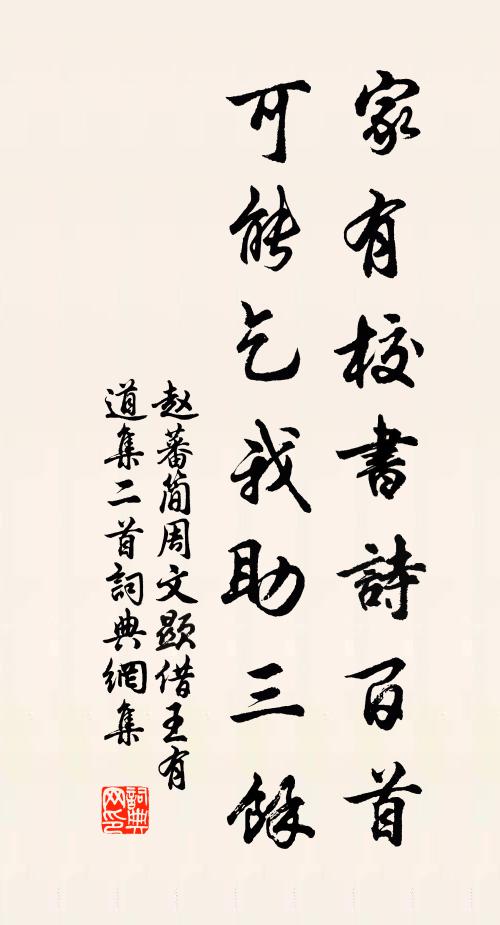 家有校書詩百首
可能乞我助三餘
赵蕃简周文顯借王有
道集二首詞典網集
詞典網印